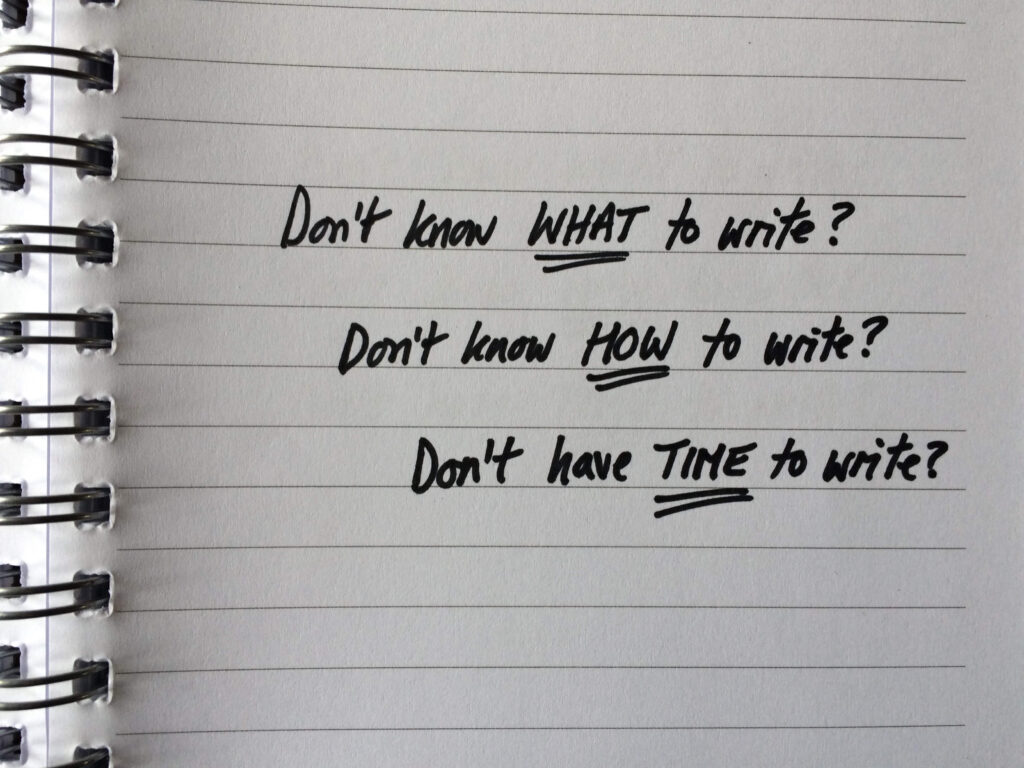 Don't know WHAT to write?
Don't know HOW to write?
Don't have TIME to write?